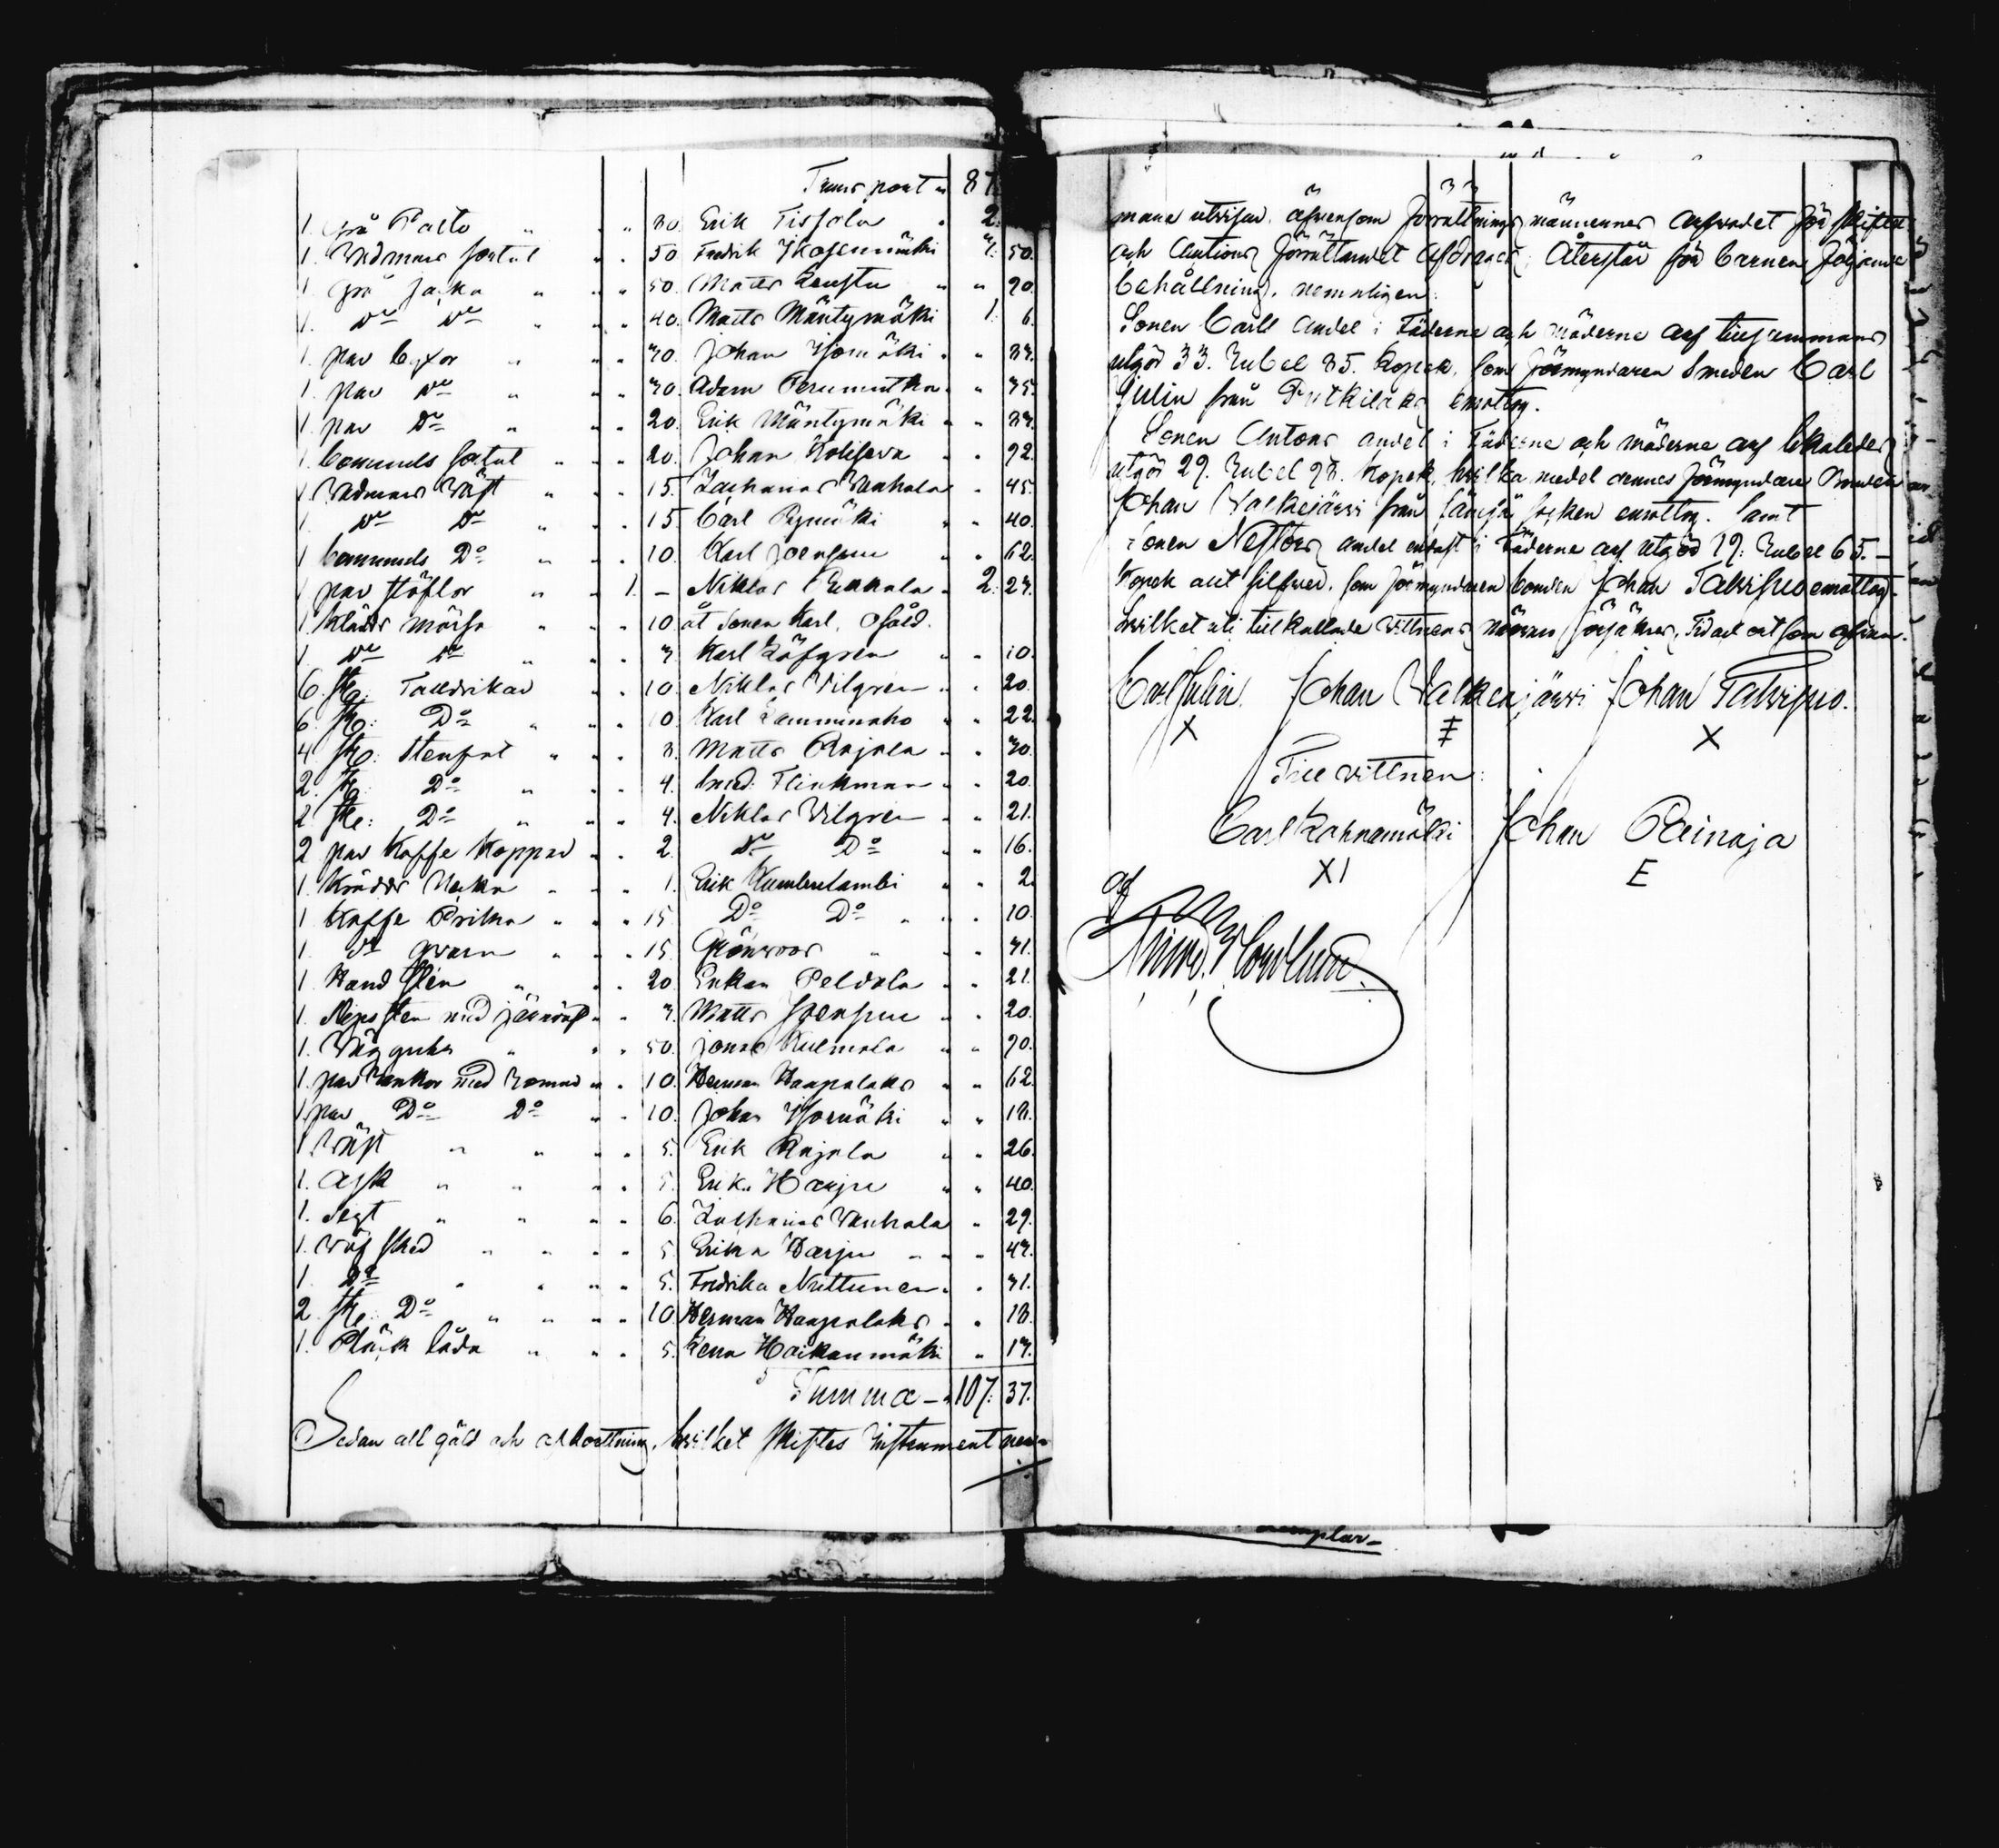 Transport " 87
1. grå Palto " " " 80. Erik Tissola " 2:
1. Vadmars sortut " " 50. Fredrik Ikosenmäki 4: 50.
1. grå jacka " " " 50. Matts " " 90.
1. Do Do " " " 40. Matts Mäntymäki 1. 6.
1. par byxor " " " 30. Johan Isomäki " " 34.
1. par Do " " " 30. Adam " " 35.
1. par Do " " " 20. Erik Mäntymäki " " 34.
1. Bomuls sortut " " " 20. Johan " " 92.
1. Vadmars Väst " " " 15. Zacharias Vanhala " 45.
1. Do Do " " " 15. Carl " " 40.
1 bomuls Do " " " 10. Karl Joensuu " " 62.
1 par stöflor " " 1. – Niklas Pukkala " 2: 24.
1. Kläds Mössa " " " 10. åt sonen Karl, osåld.
1 Do Do " " " 3. Karl Löfgren " " 10.
6. st: Talldrikar " " 10. Niklas Vilgren " " 20.
6. st: Do " " " 10. Karl Lamminaho " " 22.
4. st: Stenfat " " " 8. Matts Rajala " " 30.
2. st: Do " " " 4. smed: Flinkman " " 20.
2. st: Do " " " 4. Niklas Vilgren " " 21.
2 par Kaffe Koppar " " 2. Do Do " " 16.
1. Kräddsnäcka " " " 1. Erik " " 2.
1 Kaffe Brika " " " 15 Do Do " " 10.
1. Do qvarn " " " 15. Grönroos " " 31.
1. Hand slen " " " 20. Enkan Peldola " " 21.
1. Slipsten med järnväf " " 3. Matts Joensuu " " 20.
1. Vägguhr " " " 50. Jonas Kulmala " " 90.
1. par Rankor med " " 10. Herman Haapalaks " " 62.
1 par Do Do " " 10. Johan Isomäki " " 18.
1 Väst " " " " 5. Erik Rajala " " 26.
1. Ask " " " " 5. Erik Harju " " 40.
1. Segt " " " " 6. Zacharias Vanhala " 29.
1. Väf sked " " " " 5. Erik Harju " " " 43.
1. Do " " " " 5. Fredrika Nuttunen " " 31.
2 st: Do " " " " 10. Herman Haapalaks " " 18.
1. Pläck låda " " " 5. Lena Haikanmäki " 14.
Summa – " 107: 37.
Sedan all gäld och afkortning, hvilket skiftes Instrument
mare utvisar, äfvensom förrättnings männernes arfvodet för skiftes
och Auctions förrättandet afdragas; Återstår för barnen följande
behållning, nemnligen:
Sonen Carls andel i Fäderne och möderne arf tillsammans
utgör 33. Rubel 85. kopek, som förmyndaren Smeden Carl
Julin från emottog.
Sonen Antons andel i Fäderne och möderne arf
utgör 29. Rubel 98. kopek, hvilka medel dennes förmyndare Bonden
Johan Valkejärvi från socken emottog. Samt
Sonen Nestors andel endast i Fäderne arf utgör 19: Rubel 65. –
kopek allt silfver, som förmyndaren bonden Johan Talvisuo emottog.
hvilket uti tillkallade vittnens närvaro försäkras, Tid och ort som ofvan.
Carl Julin. Johan Valkeajärvi Johan Talvisuo.
X ‡ X
Till vittnen:
Carl Kohnamäki Johan Reinoja
XI E
af
exemplar –